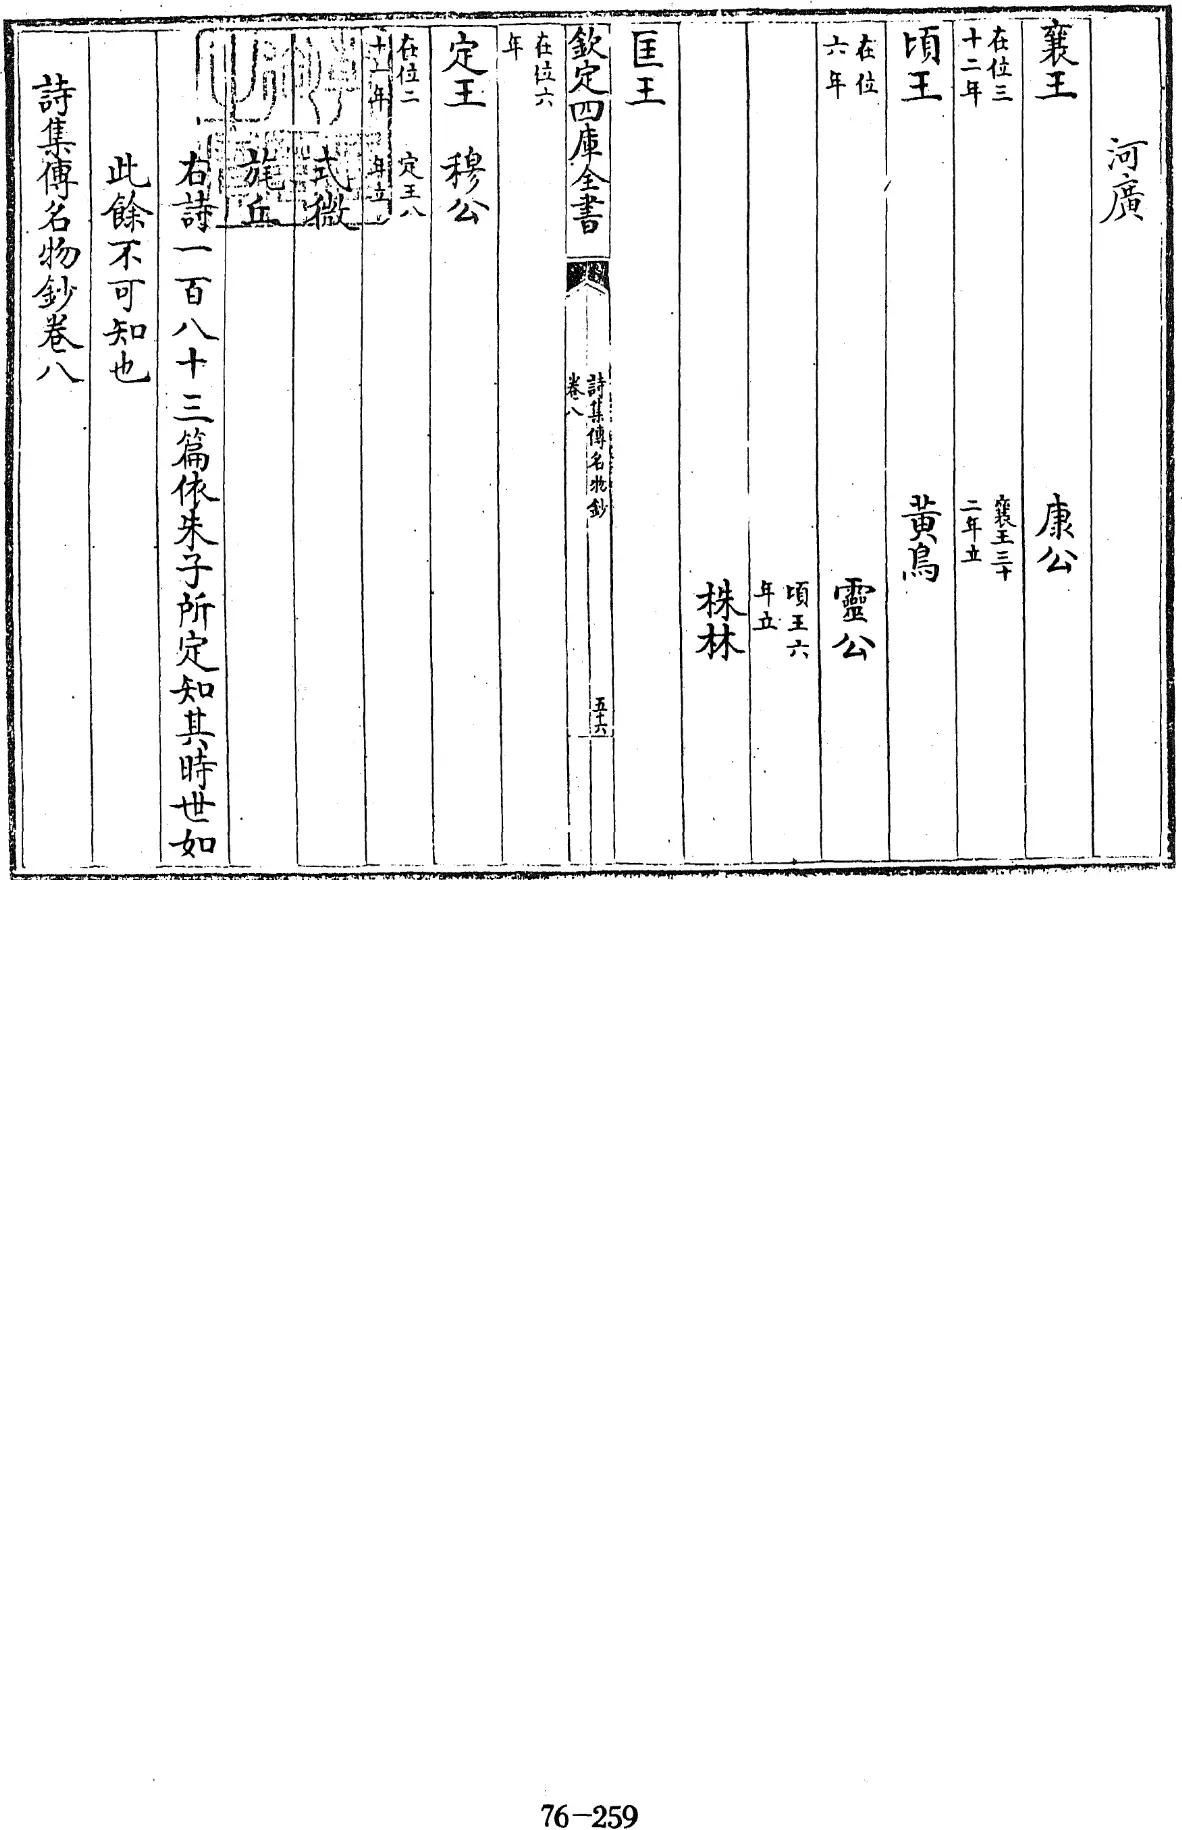 河廣
襄王　康公
在位三十二年　襄王三十二年立
頃王　黃鳥
在位六年　靈公
頃王六年立
株林
匡王
欽定四庫全書　詩集傳名物鈔卷八　五十六
在位六年
定王　穆公
在位二十一年　定王八年立
式微
旄丘
右詩一百八十三篇依朱子所定知其時世如
此餘不可知也
詩集傳名物鈔卷八
76-259